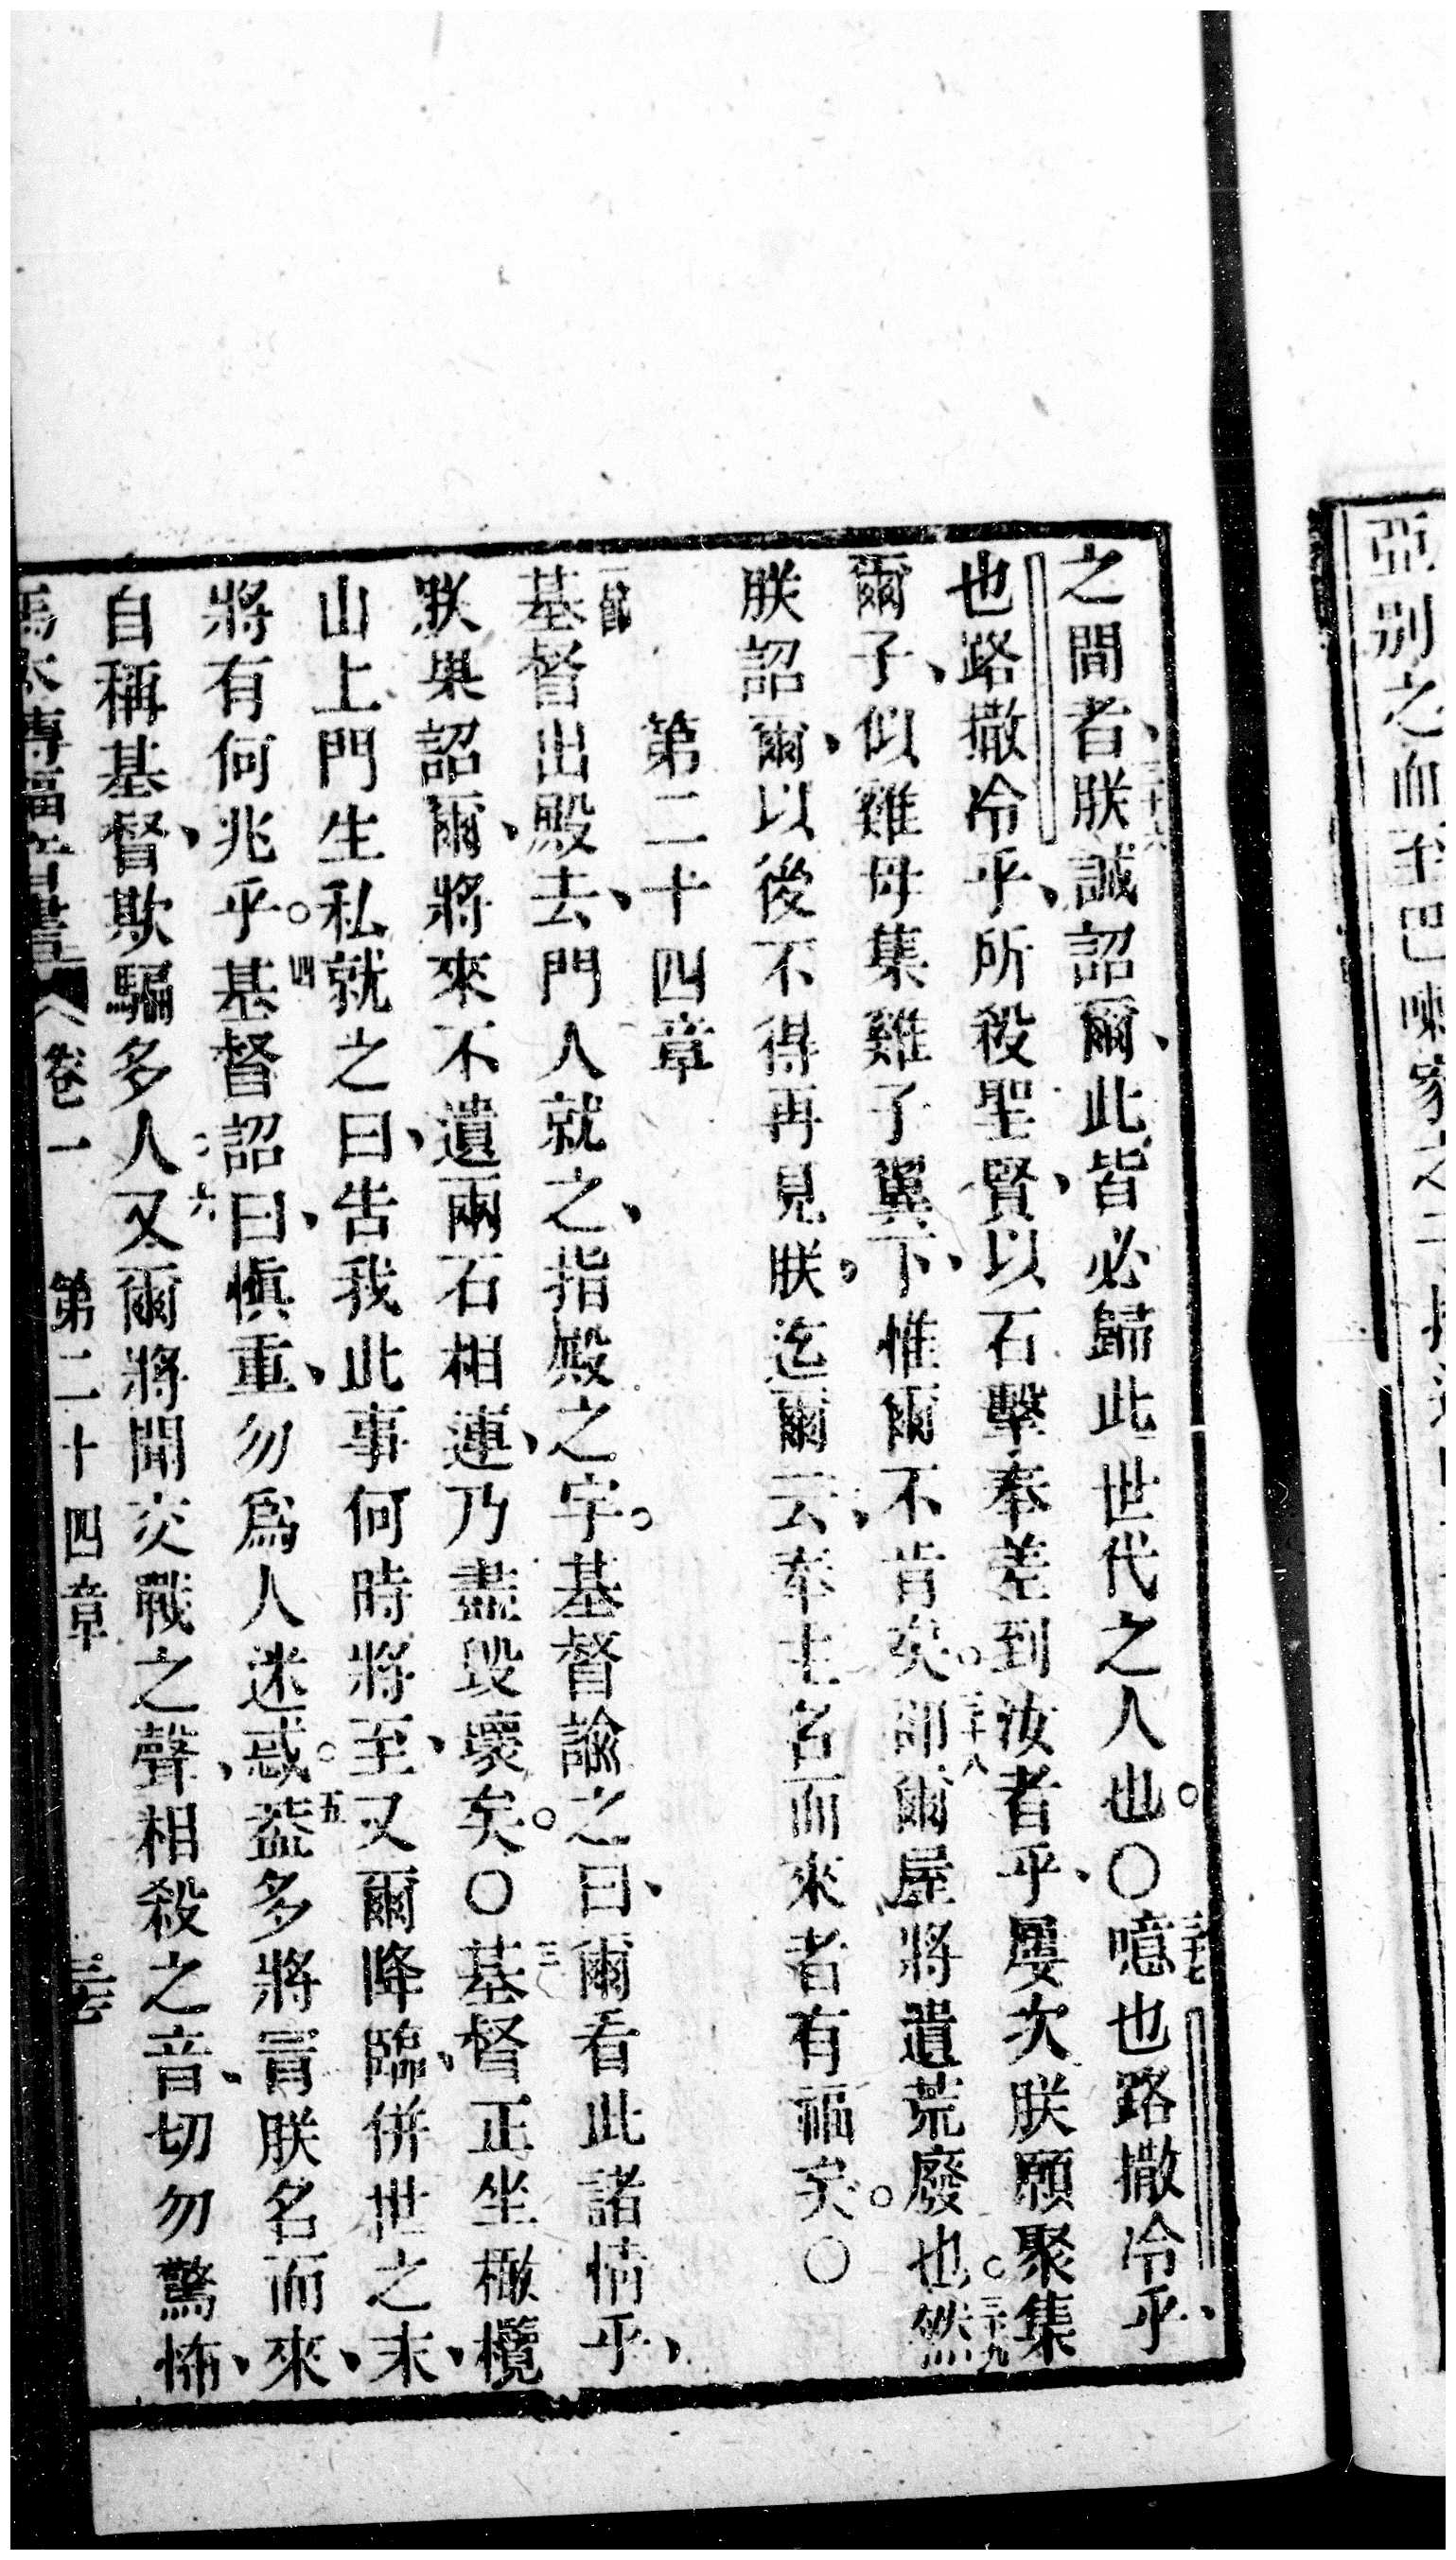 亞別之血至巴喇家之子
之間者、三十六朕誠詔爾、此皆必歸此世代之人也。〇三十七噫也路撒冷乎、
也路撒冷乎、所殺聖賢、以石擊奉差到汝者乎、屢次朕願聚集
爾子、似雞母集雞子翼下、惟爾不肯矣。三十八卽爾屋將遺荒廢也。三十九然
朕詔爾、以後不得再見朕、迄爾云、奉主名而來者有福矣。〇
第二十四章
基督出殿去、門人就之、指殿之宇。二基督諭之曰、爾看此諸情乎、
朕與詔爾、將來不遺兩石相連、乃盡毀壞矣。〇三基督正坐橄欖
山上門生私就之曰、告我此事何時將至、又爾降臨、併世之末、
將有何兆乎。四基督詔曰、愼重、勿爲人迷惑。五蓋多將冒朕名而來、
自稱基督、欺騙多人、六又爾將聞交戰之聲、相殺之音、切勿驚怖、
馬太傳福音書 卷一 第二十四章